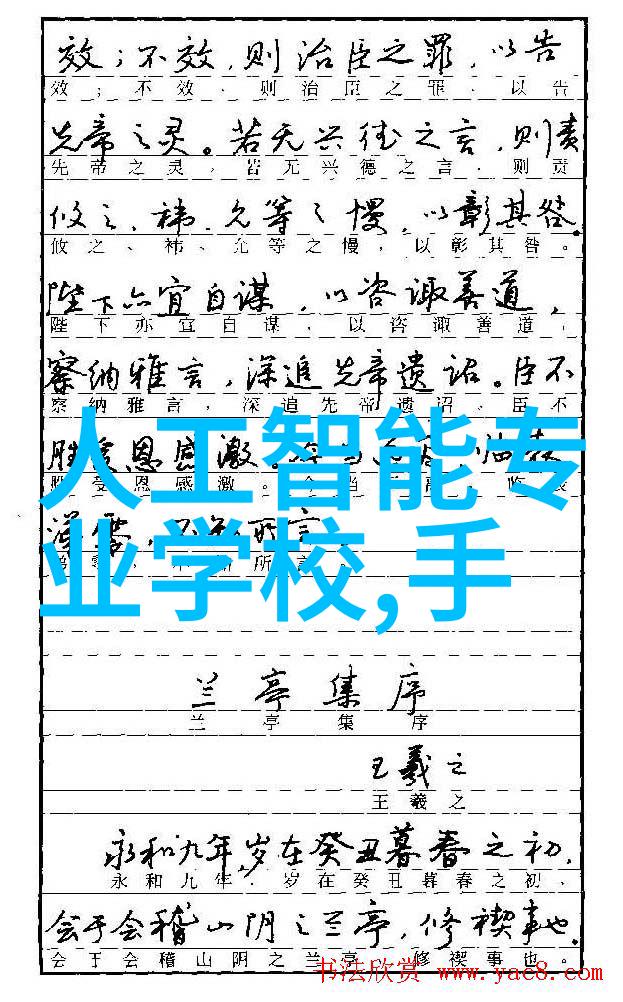 效；不效，则治臣之罪，以告
效；不效、则治臣之罪、以告
先帝之灵。若无兴德之言，则责
先帝之灵，若无兴德之言，则责
攸之、祎、允等之慢，以彰其咎。
攸之、祎、允等之慢，以彰其咎。
陛下亦宜自谋，以咨诹善道，
陛下亦宜自谋，以咨诹善道，
察纳雅言，深追先帝遗诏。臣不
察纳雅言，深追先帝遗诏。臣不
胜受恩感激。
受恩感激。
人工智能专
业学校,手
兰亭集序
兰亭集序
王羲之
王羲之
永和九年，岁在癸丑暮春之初，
永和九年，岁在癸丑暮春之初，
会于会稽山阴之兰亭，修禊事也。
会于会稽山阴之兰亭，修禊事也。
书法欣赏 www.yac8.com